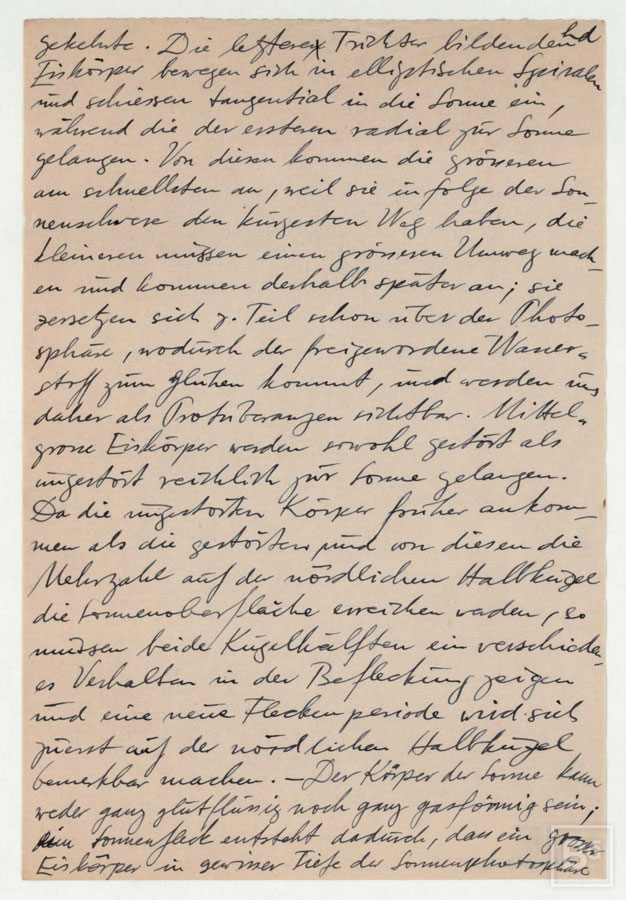 gekehrte. Die letzteren Trichter bildenden
Eiskörper bewegen sich in elliptischen Spiralen
und schiessen tangential in die Sonne ein,
während die der ersteren radial zur Sonne
gelangen. Von diesen kommen die grösseren
am schnellsten an, weil sie infolge der Son-
nenschwere den kürzesten Weg haben, die
kleineren müssen einen grösseren Umweg mach-
en und kommen deshalb später an; sie
zersetzen sich z. Teil schon über der Photo-
sphäre, wodurch der freigewordene Wasser-
stoff zum glühen kommt, und werden uns
daher als Protuberanzen sichtbar. Mittel-
grosse Eiskörper werden sowohl gestört als
ungestört reichlich zur Sonne gelangen.
Da die ungestörten Körper früher ankom-
men als die gestörten und von diesen die
Mehrzahl auf der nördlichen Halbkugel
die Sonnenoberfläche erreichen werden, so
müssen beide Kugelhälften ein verschieden-
es Verhalten in der Befleckung zeigen
und eine neue Fleckenperiode wird sich
zuerst auf der nördlichen Halbkugel
bemerkbar machen. — Der Körper der Sonne kann
weder ganz glutflüssig noch ganz gasförmig sein;
ein Sonnenfleck entsteht dadurch, dass ein grosser
Eiskörper in gewisser Tiefe der Sonnenphotosphäre